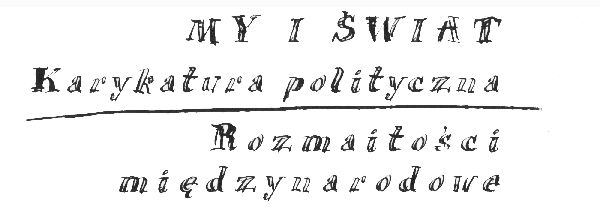 MY I ŚWIAT
Karykatura polityczna
Rozmaitości
międzynarodowe